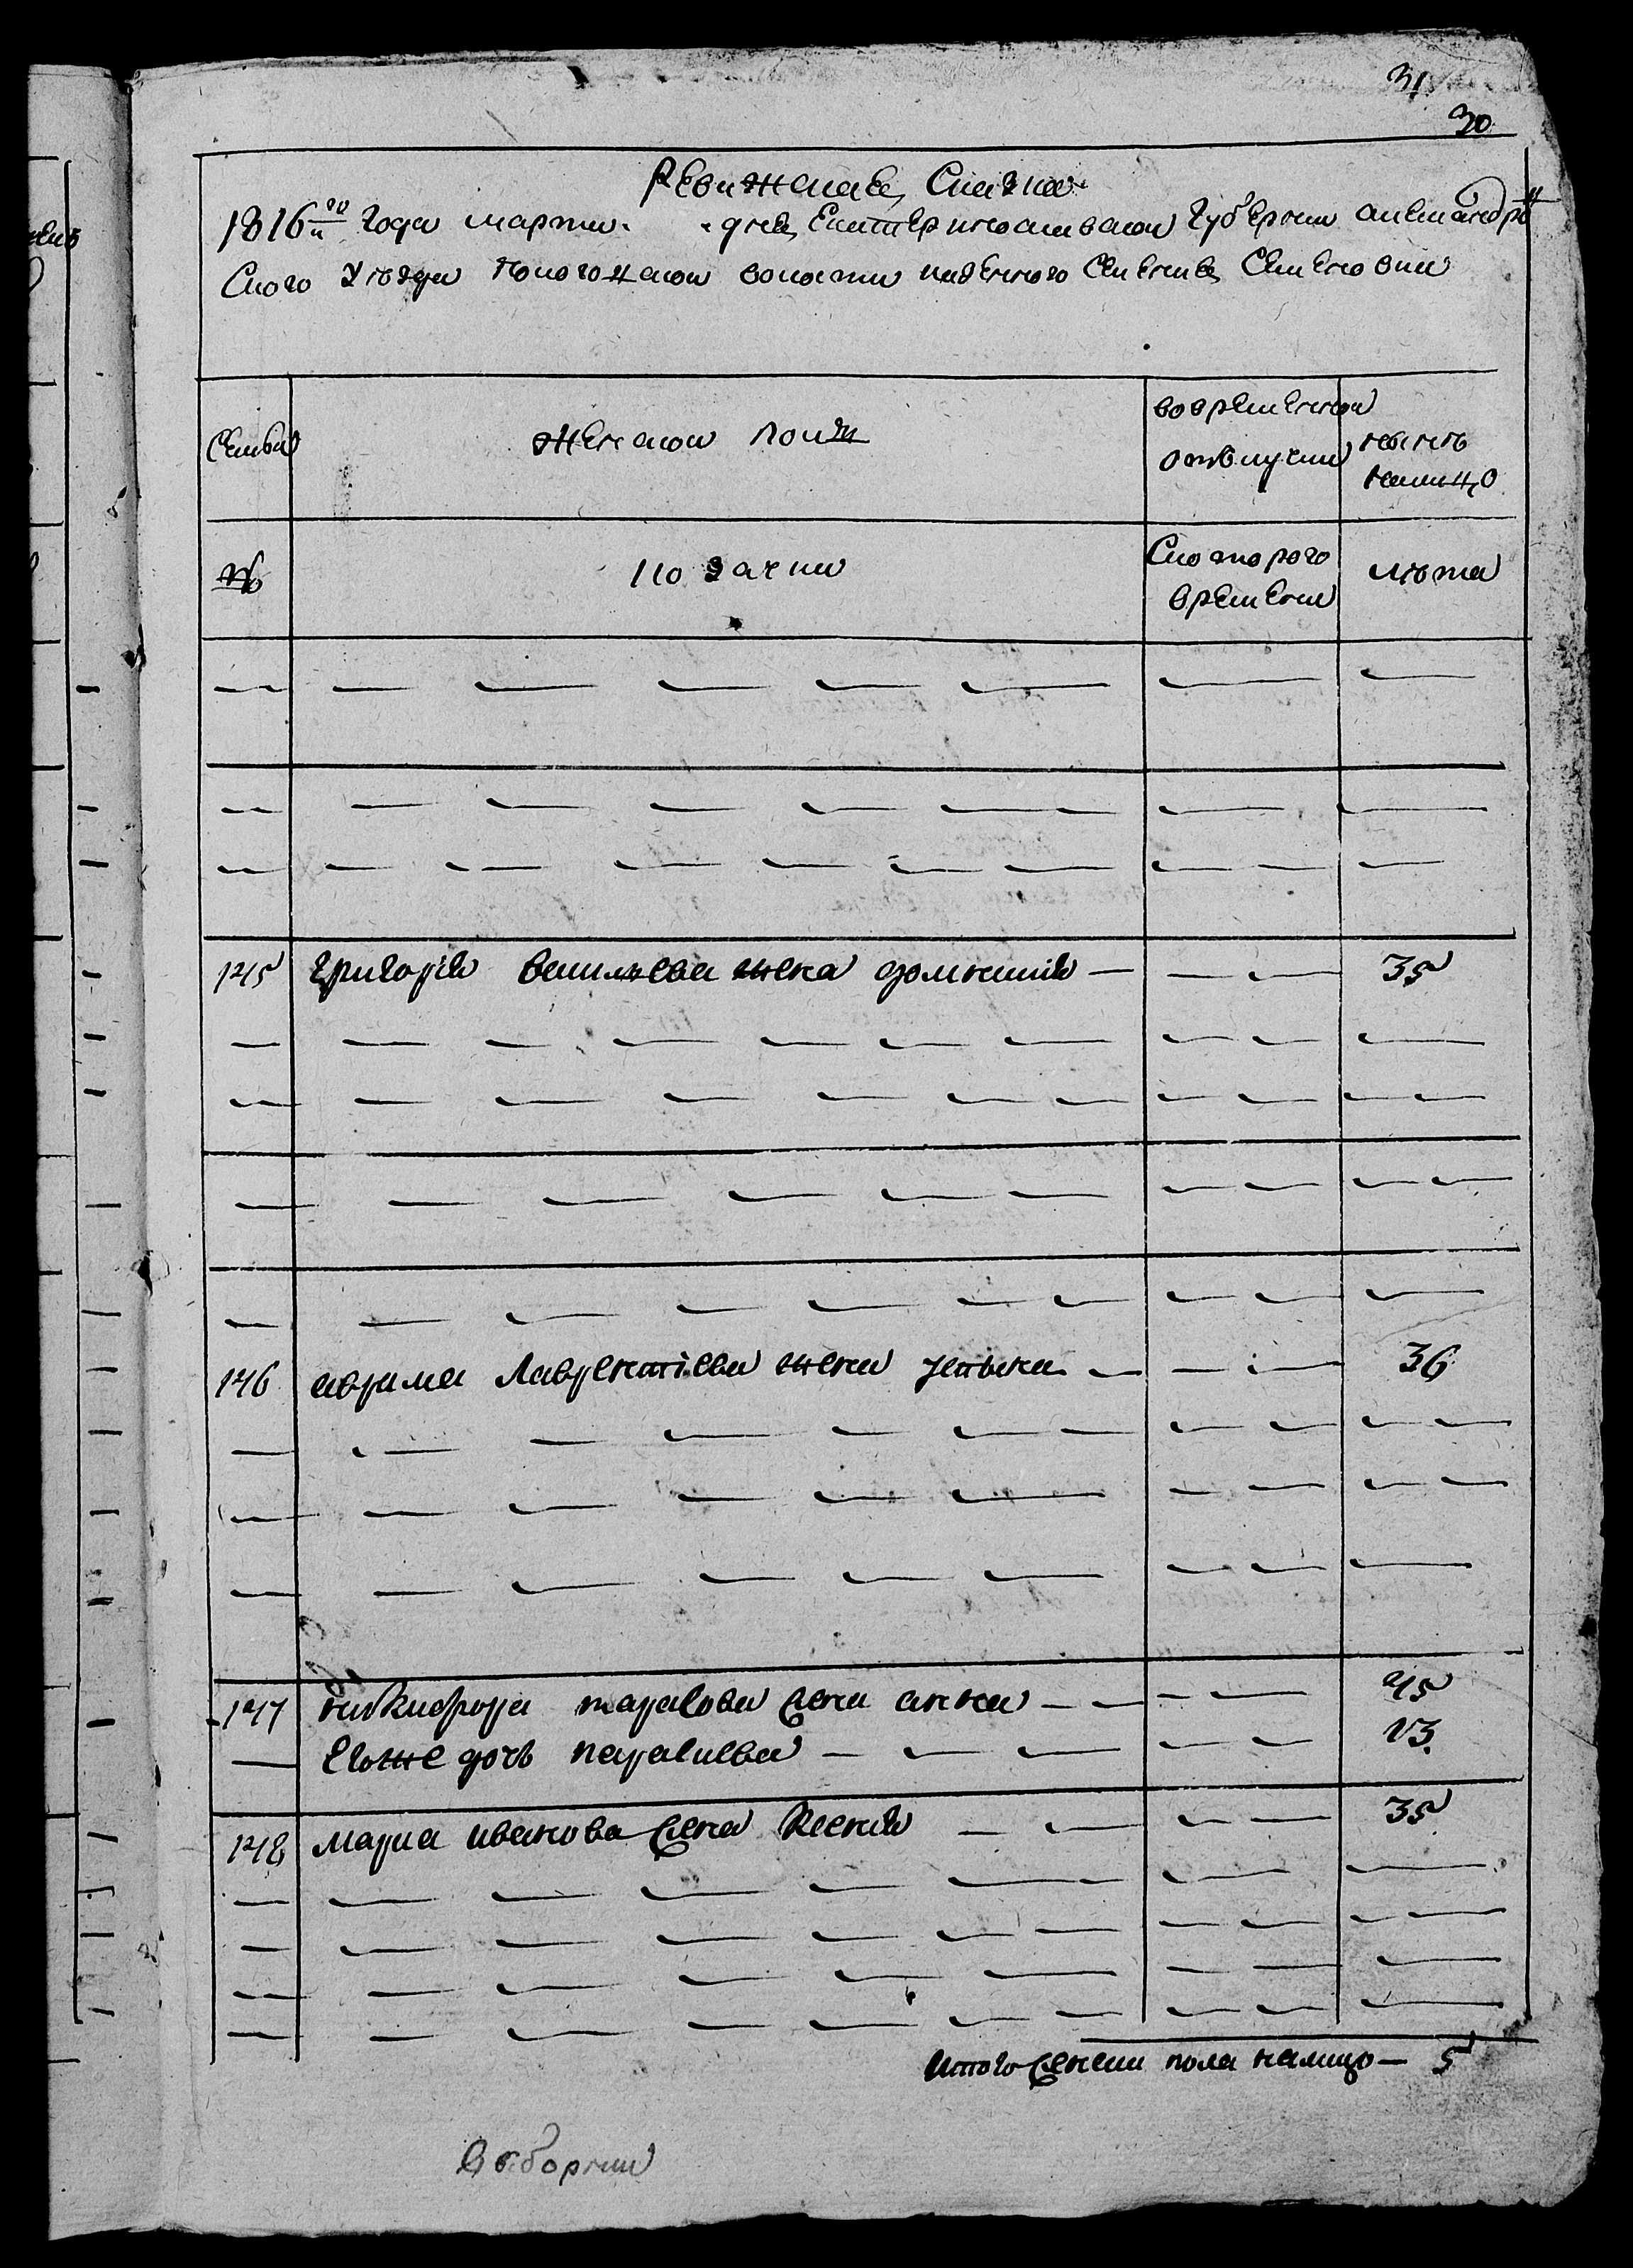 31
30
Ревижская Сказка
1816го года марта дня Екатеринославской Губернии александров
Ского уезда волости казенного Селения Семеновки
Семьи женской полъ вовременной отлучки ныне налицо
№ по задачии Скоторого времени лѣта
145 григорія васильева жена домникия 35
146 аврама Лаврентіева жена устина 36
147 никифора тарасова жена анна 45
Егоже дочь параскева 13
148 марка иванова жена Ксения 35
Итого женска пола налицо 5
Выборнии